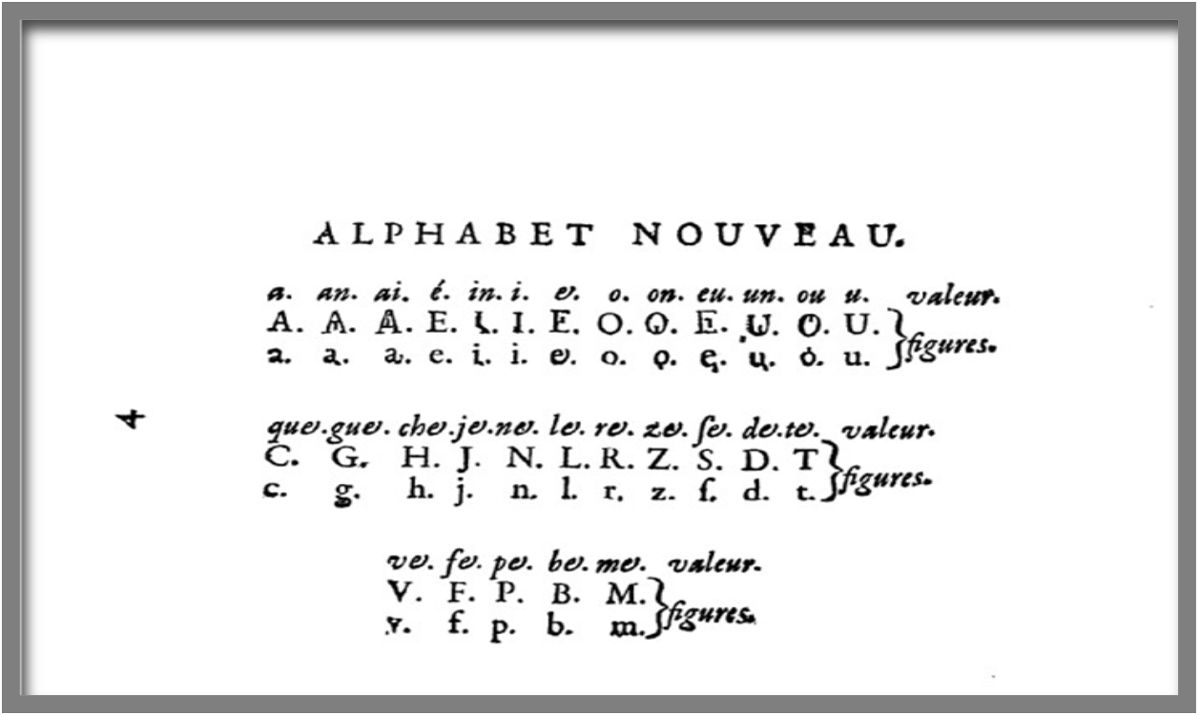 ALPHABET NOUVEAU.
a. an. ai. é. in. i. e. o. on. eu. un. ou u. valeur.
A. A. A. E. I. I. E. O. O. E. U. O. U.
a. a. a. e. i. i. e. o. o. e. u. o. u. figures.
que. gue. che. je. ne. le. re. ze. ſe. de. te. valeur.
C. G. H. J. N. L. R. Z. S. D. T
c. g. h. j. n. l. r. z. ſ. d. t. figures.
ve. fe. pe. be. me. valeur.
V. F. P. B. M.
v. f. p. b. m. figures.